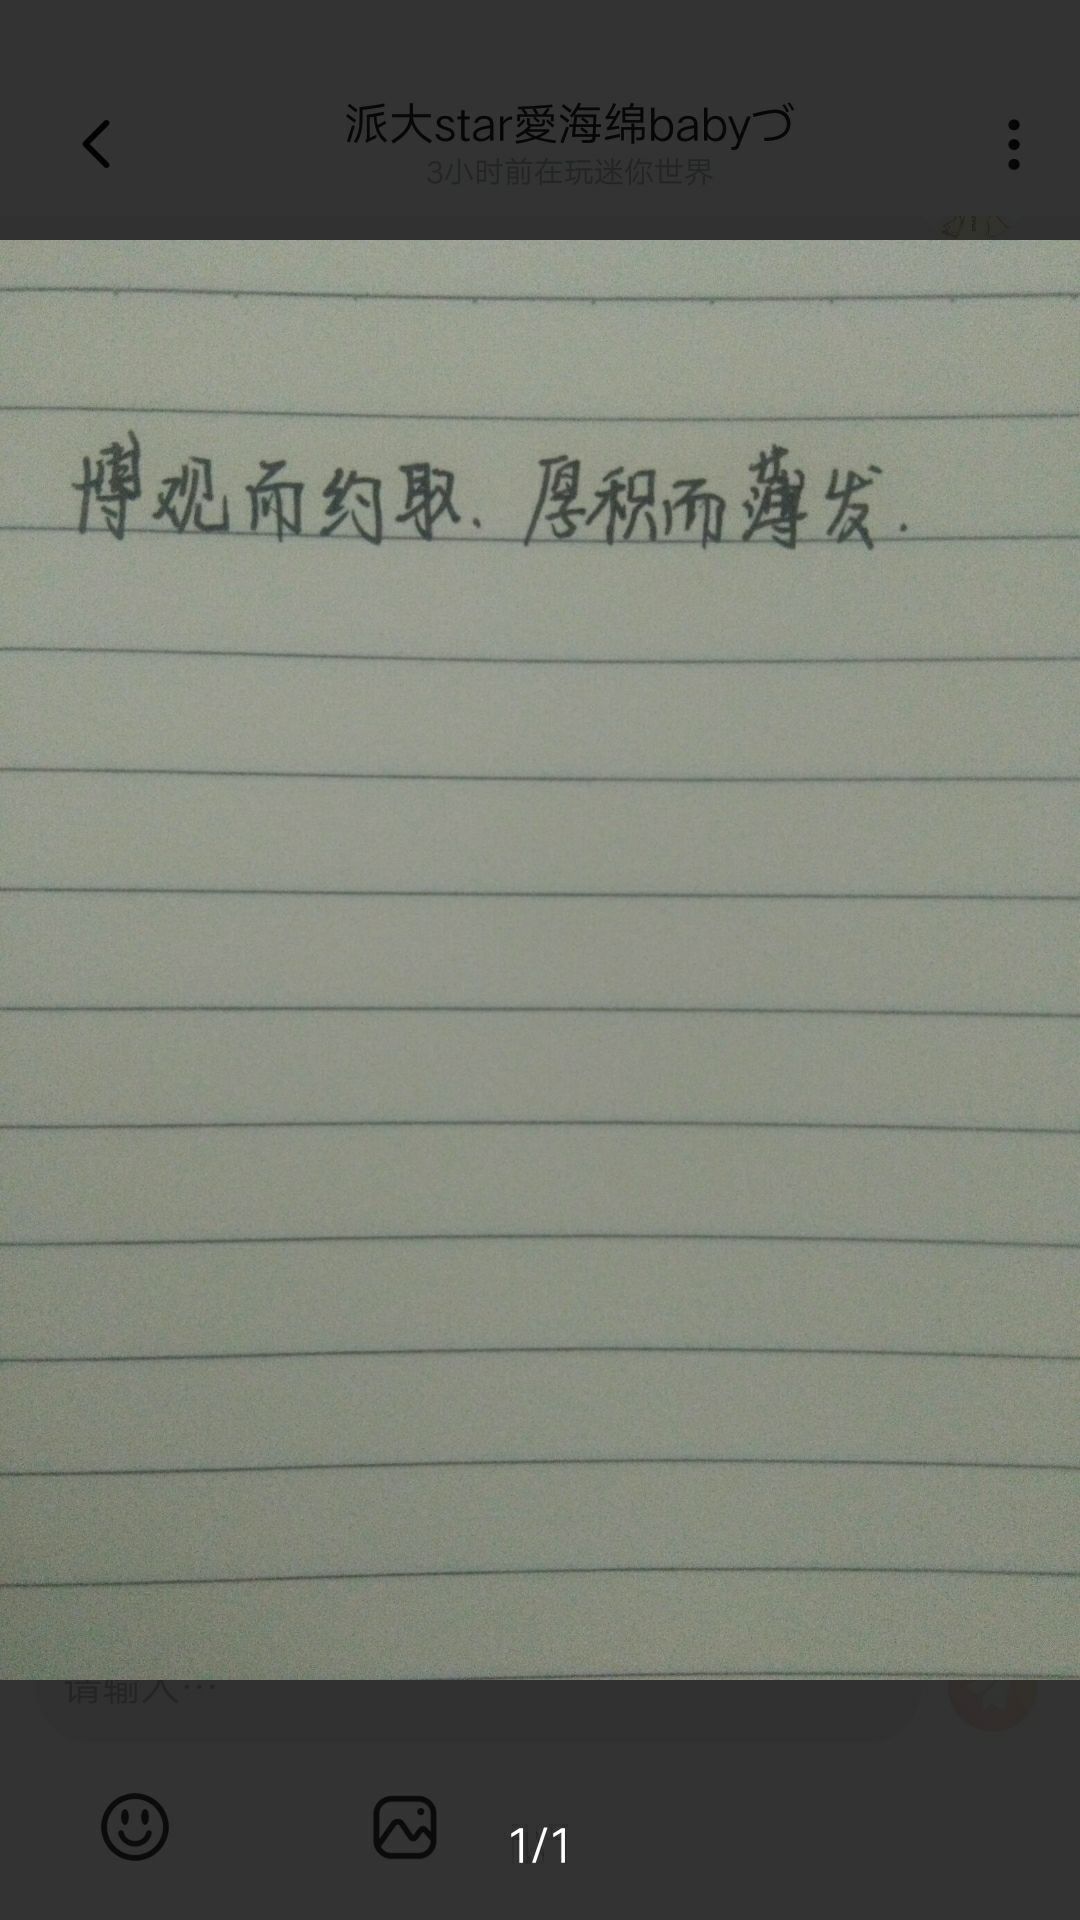 派大star愛海绵babyづ
3小时前在玩迷你世界
博观而约取、厚积而薄发.
请输入…
1/1